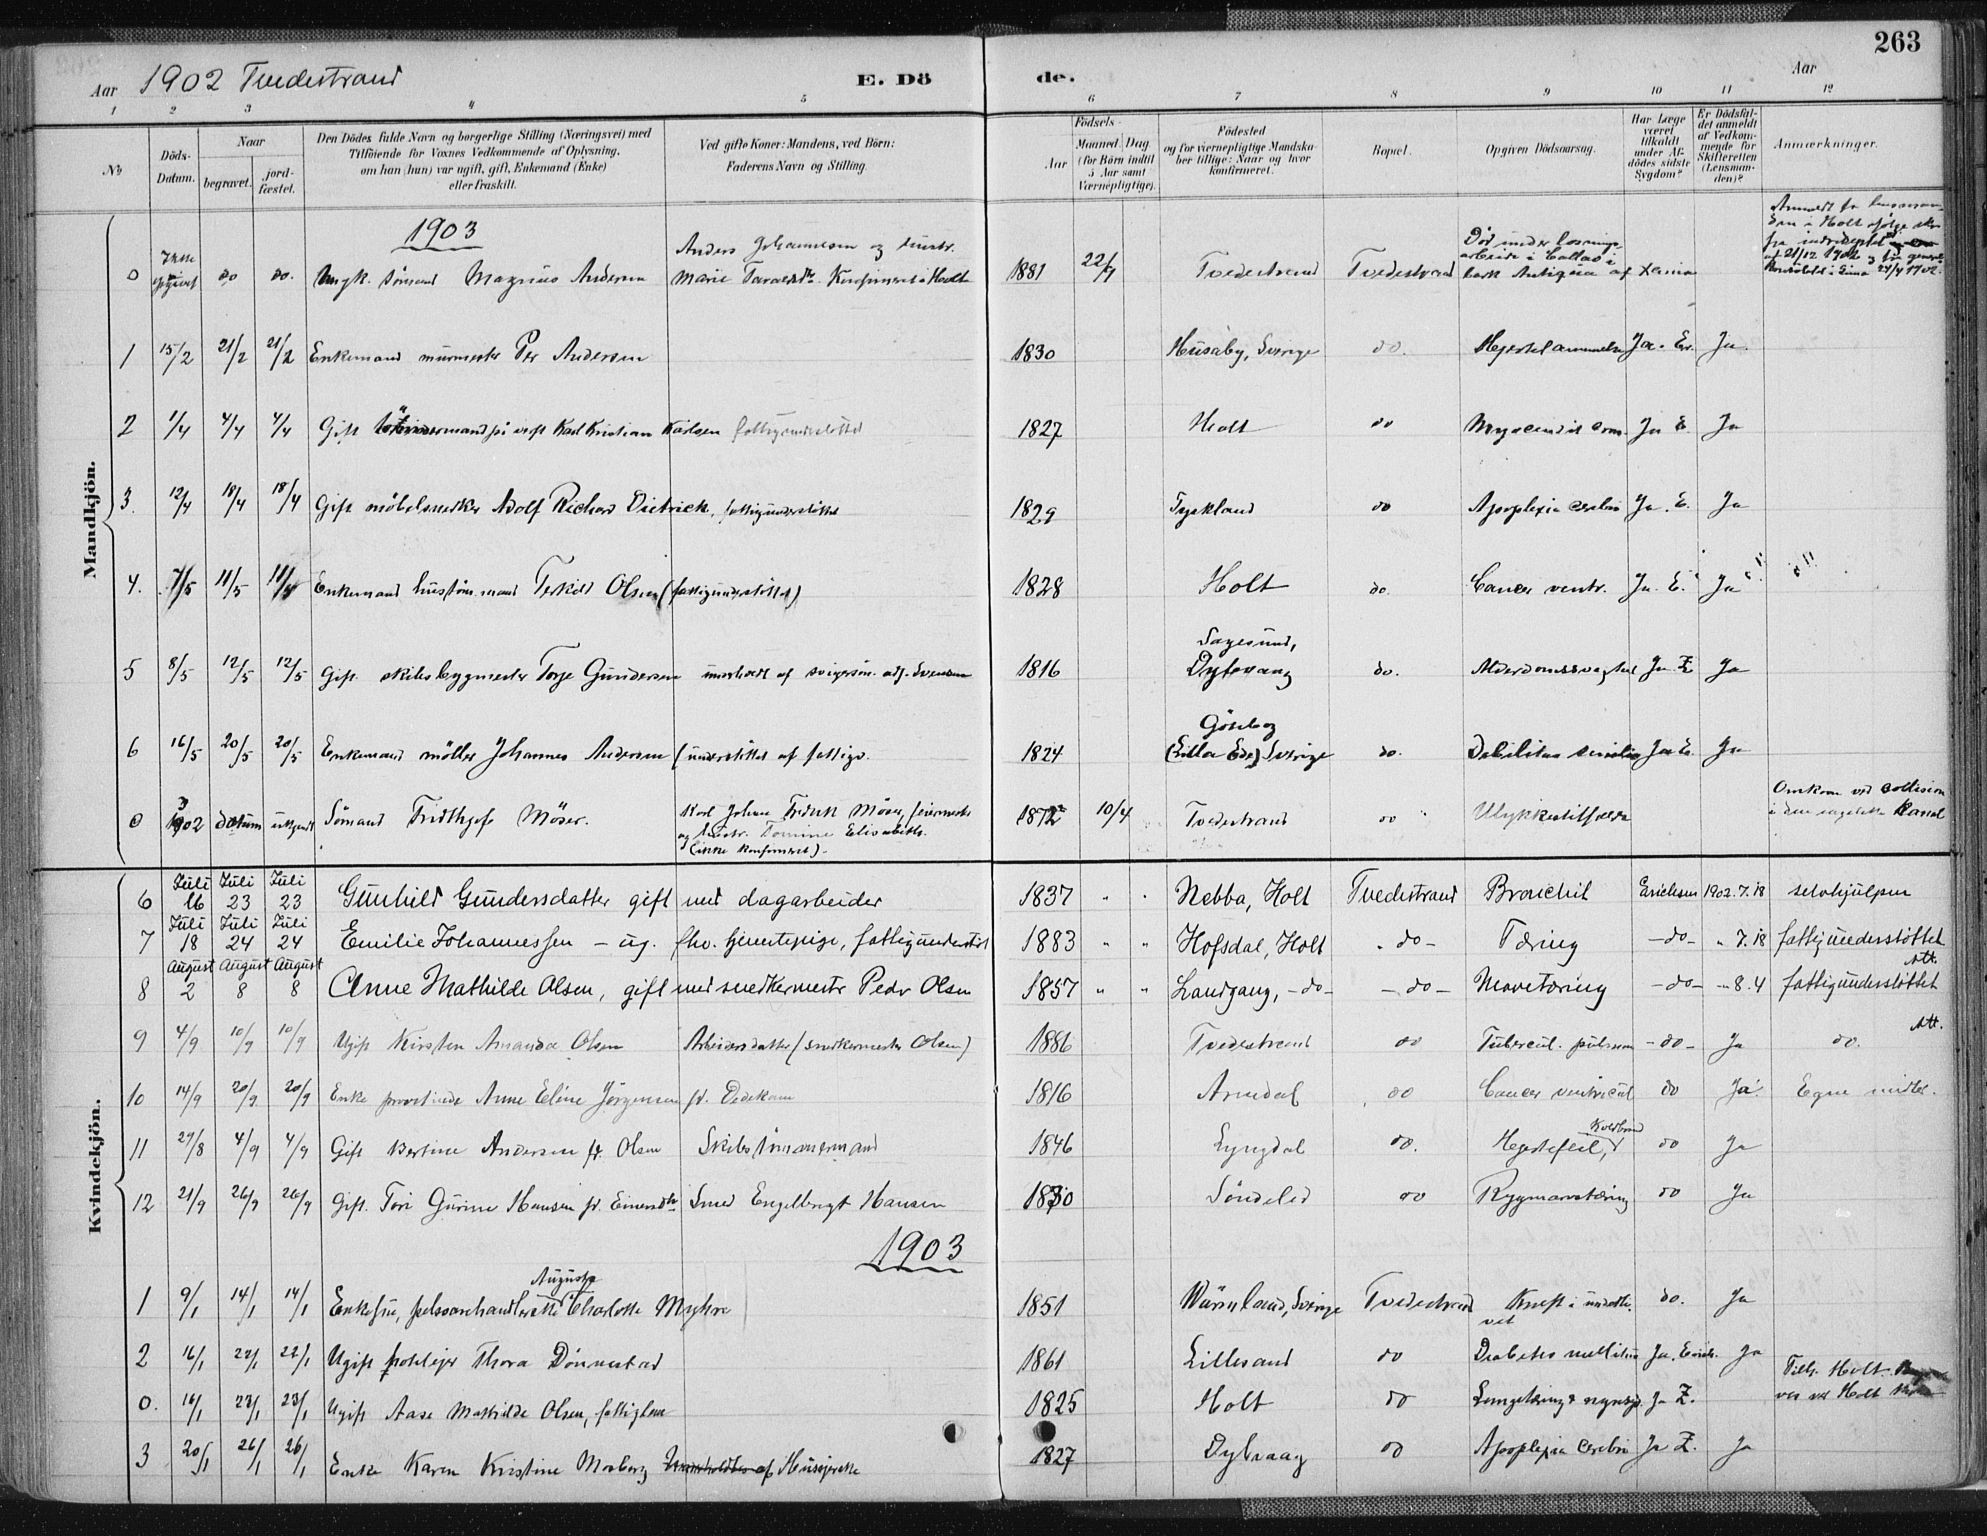 263
Aar 1902 Tvedestrand E. Döde. Aar
1 2 3 4 5 6 7 8 9 10 11 12
No
Döds-Datum.
Naar
begravet. jordfæstet.
Den Dödes fulde Navn og borgerlige Stilling (Næringsvei) med
Tilföiende for Voxnes Vedkommende af Oplysning,
om han (hun) var ugift, gift, Enkemand (Enke)
eller fraskilt.
Ved gifte Koner: Mandens, ved Börn:
Faderens Navn og Stilling.
Födsels-
Aar Maaned Dag
(for Börn indtil 5 Aar samt Værnepligtige).
Födested
og for viernepligtige Mandskaber tillige: Naar og hvor konfirmeret.
Bopæl.
Opgiven Dödsaarsag.
Har Læge været tilkaldt under Afdödes sidste Sygdom?
Er Dödsfaldet anmeldt af Vedkommende for Skifteretten (Lensmanden)?
Anmærkninger.
Mandkjön.
1903
0 Ikke opgivet do do. Ungk. sömand Magnus Andersen Anders Johannesen og hustr. Marie 1881 22/9 Tvedestrand Tvedestrand Död under losningsarbeide i Callao i bark Antigua af
1 15/2 21/2 21/2 Enkemand murmester Per Andersen 1830 Husaby, Sverige do. Hjertelammelse Ja. Er. Ja.
2 1/4 4/4 4/4 Gift tömmermand på verft Karl Kristian Karlsen fattigunderstöttet 1827 Holt do Ja E. Ja
3. 12/4 18/4 18/4 Gift möbelsnedker Adolf Richard Dietrich, fattigunderstöttet 1829 Tyskland do Apoplexia cerebri Ja. E. Ja
4. 7/5 11/5 11/5 Enkemand hustöm.mand Terkild Olsen (fattigunderstöttet) 1828 Holt do. Cancer ventr. Ja. E. Ja
5 8/5 12/5 12/5 Gift skibsbygmester Torje Gundersen underholdt af svigersön. adj. Svensen 1816 Sagesund, Dybvaag do. Alderdomssvaghed Ja Z Ja
6 16/5 20/5 20/5 Enkemand möller Johannes Andersen (understöttet af fattigv. 1824 Göteborg (Lilla Ede) Sverige do. Debilitas senilis Ja E. Ja
0 1902 datum ukjendt Sömand Fridthjof Möser. Karl Johan Fredrik Möser, og hustr. Tomine Elisabeth. (ikke konfirmeret). 1872 10/4 Tvedestrand do Ulykkestilfælde Omkom ved Collision i den engelske Kanal
Kvindekjön.
6 Juli 16 Juli 23 Juli 23 Gunhild Gundersdatter gift med dagarbeider 1837 " " Nebba, Holt Tvedestrand Bronchit Erichsen 1902.7.18 selvhjulpen
7 Juli 18 Juli 24 Juli 24 Emilie Johannessen - ug. fhv. tjenestepige, fattigunderstöt 1883 " " Hofsdal, Holt -do- Tæring -do- " 7.18 fattigunderstöttet
8 August 2 August 8 August 8 Anne Mathilde Olsen, gift med snedkermestr Peder Olsen 1857 " " Landgang, -do- -do- Mavetæring -do- -"-8.4 fattigunderstöttet Att.
9 4/9 10/9 10/9 Ugift Kirsten Amanda Olsen Arbeidersdatter (snedkermester Olsen) 1886 Tvedestrand do Tubercul. pulmon -do- Ja do. Att.
10 14/9 20/9 20/9 Enke provstinde Anne Eline Jörgensen f. Dedekam 1816 Arendal do Cancer ventricul do Ja. Egne midler.
11 27/8 4/9 4/9 Gift Bertine Andersen f. Olsen Skibstömmermand 1846 Lyngdal do. Hjertefeil, Koldbrand do Ja
12 21/9 26/9 26/9 Gift. Tori Gurine Hansen f. Smed Engelbregt Hansen 1830 Söndeled do Rygmarvstæring do Ja
1903
1 9/1 14/1 14/1 Enkefrue, pelsvarehandlerske Augusta Charlotte Myhre 1851 Wärmland, Sverige Tvedestrand Kræft i underlivet do. Ja
2 16/1 22/1 22/1 Ugift fröken Thora Dönnestad 1861 Lillesand do Diabetes mellitus Ja. Erich. Ja
0. 16/1 23/1 23/1 Ugift Aase Mathilde Olsen, fattiglem 1825 Holt do Ja Z. Tilh. Holt. ved Holt
3 20/1 26/1 26/1 Enke Karen Kristine Morberg Husejerske 1827 Dybvaag do Apoplexia cerebri Ja Z. Ja